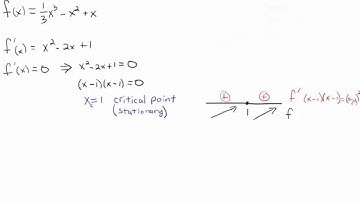 f(x) = 1/3 x³ - x² + x
f'(x) = x² - 2x + 1
f'(x) = 0 ⇒ x² - 2x + 1 = 0
(x-1)(x-1) = 0
x = 1 critical point
(stationary)
+ + f' (x-1)(x-1) = (x-1)²
1 f